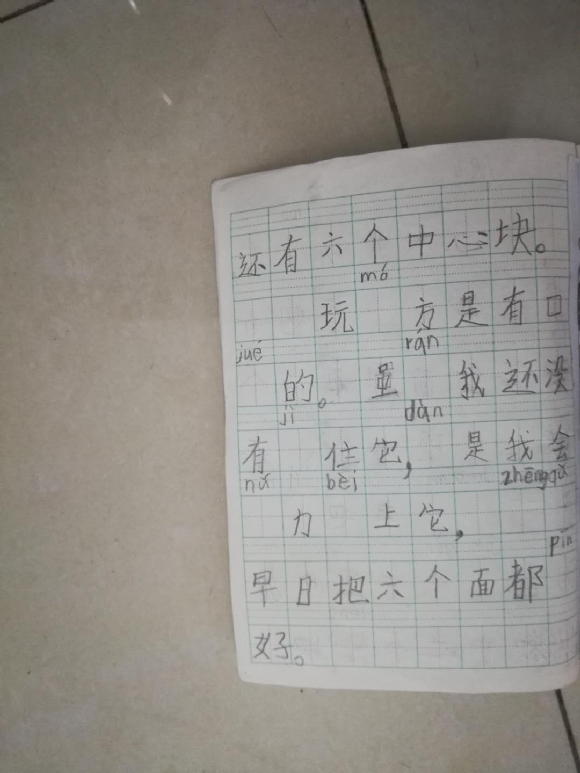 还有六个中心块。
mó
玩 方是有口
jué rán
的。虽 我还没
jì dàn
有 住它, 是我会
nǔ bèi zhēngqǔ
力 上它,
pīn
早日把六个面都
好。